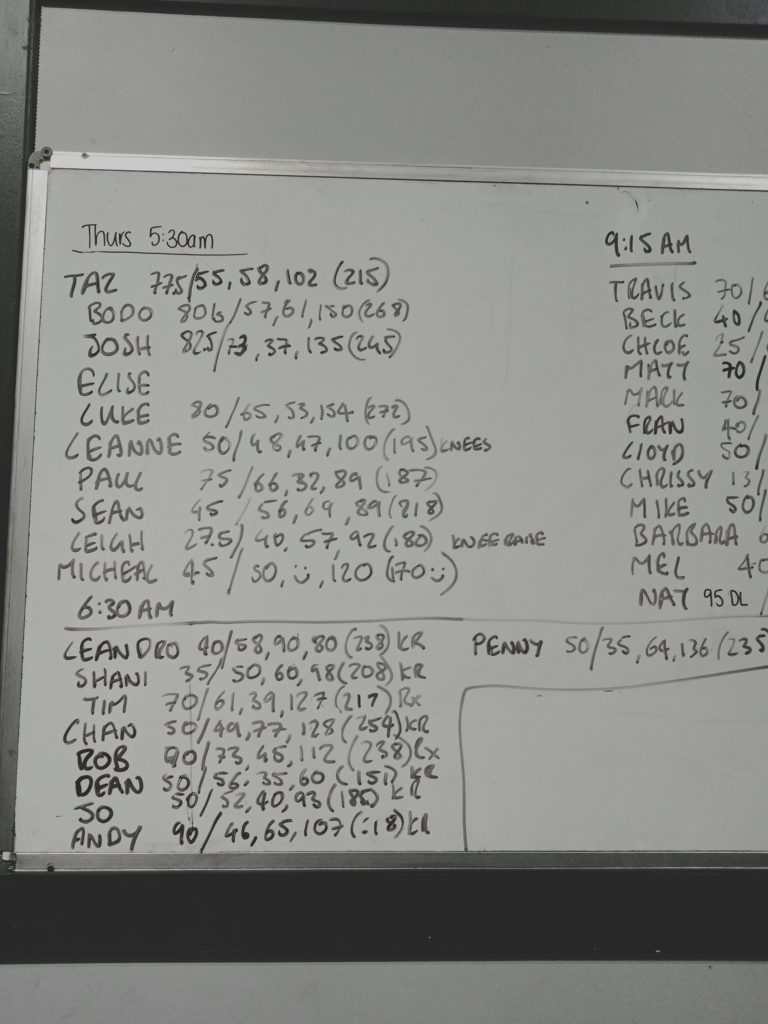 Thurs 5:30am
TAZ 775/55, 58, 102 (215)
BODO 806/57, 61, 150 (268)
JOSH 825/73, 37, 135 (245)
ELISE
LUKE 80/65, 53, 154 (272)
LEANNE 50/48, 47, 100 (195) KNEES
PAUL 75/66, 32, 89 (187)
SEAN 45/56, 69, 89 (218)
LEIGH 27.5/40, 57, 92 (180) KNEE RAISE
MICHEAL 45/50, :), 120 (170 :))
6:30 AM
LEANDRO 40/58, 90, 80 (238) KR
SHANI 35/50, 60, 98 (208) KR
TIM 70/61, 39, 127 (217) Rx
CHAN 50/49, 77, 128 (254) KR
ROB 90/73, 45, 112 (238) Rx
DEAN 50/56, 35, 60 (151) KR
JO 50/52, 40, 93 (185) KR
ANDY 90/46, 65, 107 KR
PENNY 50/35, 64, 136 (235
9:15 AM
TRAVIS 70/
BECK 40/
CHLOE 25/
MATT 70/
MARK 70/
FRAN 40/
LLOYD 50/
CHRISSY 13/
MIKE 50/
BARBARA
MEL 40
NAT 95 DL /